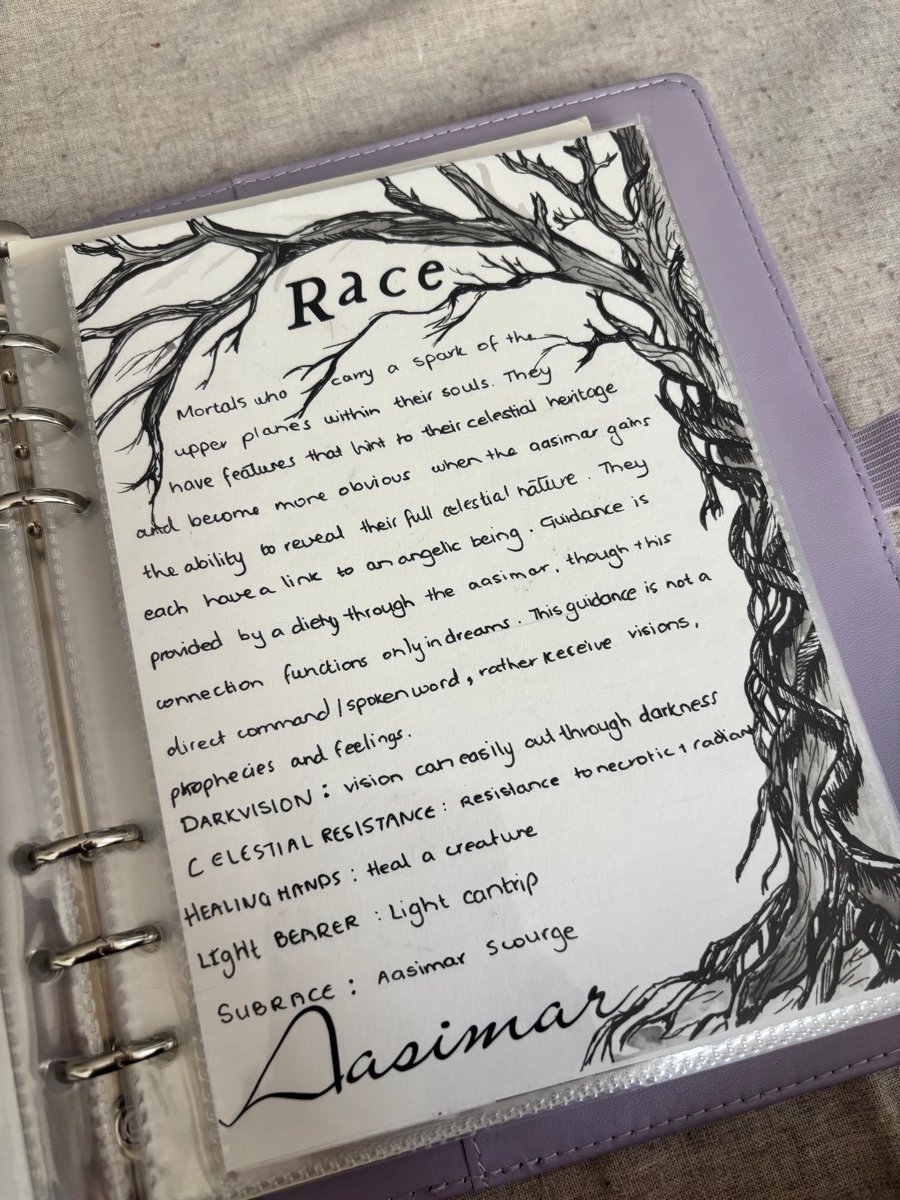 Race
Mortals who carry a spark of the
upper planes within their souls. They
have features that hint to their celestial heritage
and become more obvious when the aasimar gains
the ability to reveal their full celestial nature. They
each have a link to an angelic being. Guidance is
provided by a diety through the aasimar, though this
connection functions only in dreams. This guidance is not a
direct command / spoken word, rather receive visions,
prophecies and feelings.
DARKVISION: vision can easily cut through darkness
CELESTIAL RESISTANCE: Resistance to necrotic + radian
HEALING HANDS: Heal a creature
LIGHT BEARER: Light cantrip
SUBRACE: Aasimar Scourge
Aasimar